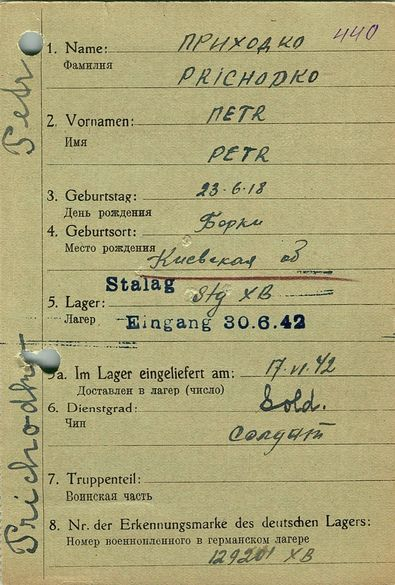 440
1. Name: ПРИХОДКО
Фамилия
PRICHODKO
2. Vornamen: ПЕТR
Имя
PETR
3. Geburtstag: 23·6·18
День рождения
4. Geburtsort: Борки
Место рождения Киевская об
Stalag
5. Lager: Stg XB
Лагер
Eingang 30.6.42
5a. Im Lager eingeliefert am: 17.VI.42
Доставлен в лагер (число)
6. Dienstgrad: Sold.
Чин
Солдат
7. Truppenteil:
Воинская часть
8. Nr. der Erkennungsmarke des deutschen Lagers:
Номер военнопленного в германском лагере
129201 XB
Prichodko Petr